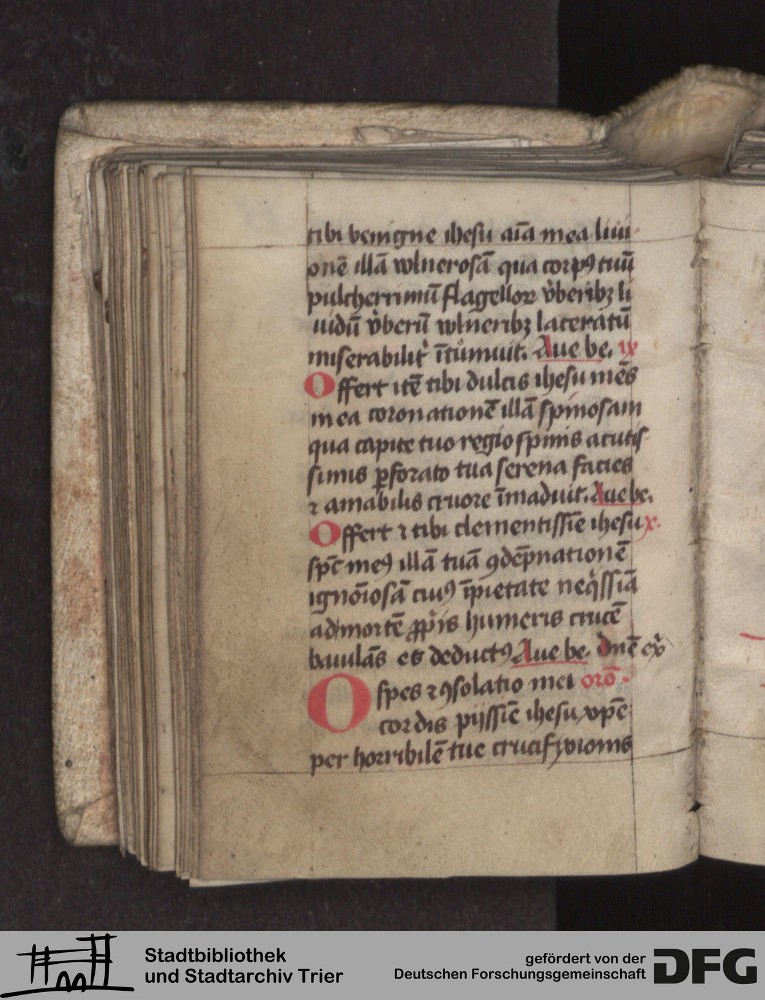 tibi benigne ihesu aīa mea liui
onē illā wlnerosā qua corpꝰ tuū
pulcherrimū flagelloꝝ v̓beribꝫ li
uidū v̓berū wlneribꝫ laceratū
miserabilit̓ ītumuit. Aue be. ix
Offert itē tibi dulcis ihesu mēs
mea coronationē illā spinosam
qua capite tuo regio spinis acutis
simis ꝑforato tua serena facies
⁊ amabilis cruore īmaduit. Aue be.
Offert ⁊ tibi clementissīe ihesu x.
spc̄ meꝰ illā tuā ꝯdēpnationē
ignōiosā cuiꝰ īpietate neqͥssiā
ad mortē ꝓpͥis humeris crucē
baiulās es deductꝰ Aue be. dnē ex̓
O spes ⁊ ꝯsolatio mei orō.
cordis pijssīe ihesu xpē
per horribilē tue crucifixionis
Stadtbibliothek
und Stadtarchiv Trier
gefördert von der
Deutschen Forschungsgemeinschaft
DFG